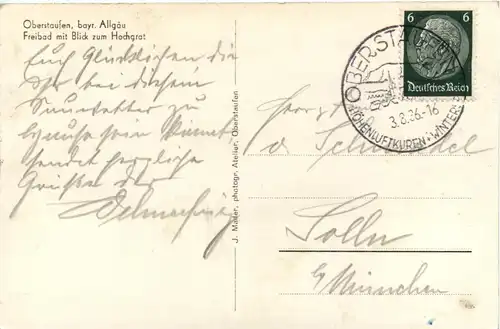 Oberstaufen, bayr. Allgäu
Freibad mit Blick zum Hochgrat
Euch Glücklichen die
Ihr bei diesem
Sauwetter zu
Hause sein könnt
sendet herzliche
Grüße der
J. Mader, photogr. Atelier, Oberstaufen
OBERSTAUFEN
3.8.36.-16
HÖHENLUFTKUREN · WINTER
6 6
Deutsches Reich
Solln
b/München